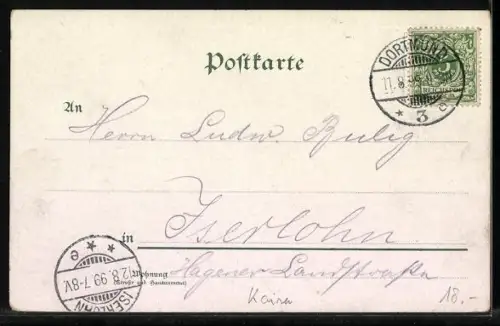 Postkarte
DORTMUND
11.8.99
* 3 e
5
REICHSPOST
An
Herrn Ludw. Bulig
Iserlohn
in
Hagener Landstraße
Wohnung
(Straße und Hausnummer)
ISERLOHN
12.8.99.7-8V.
* * e
Kaira
18,-